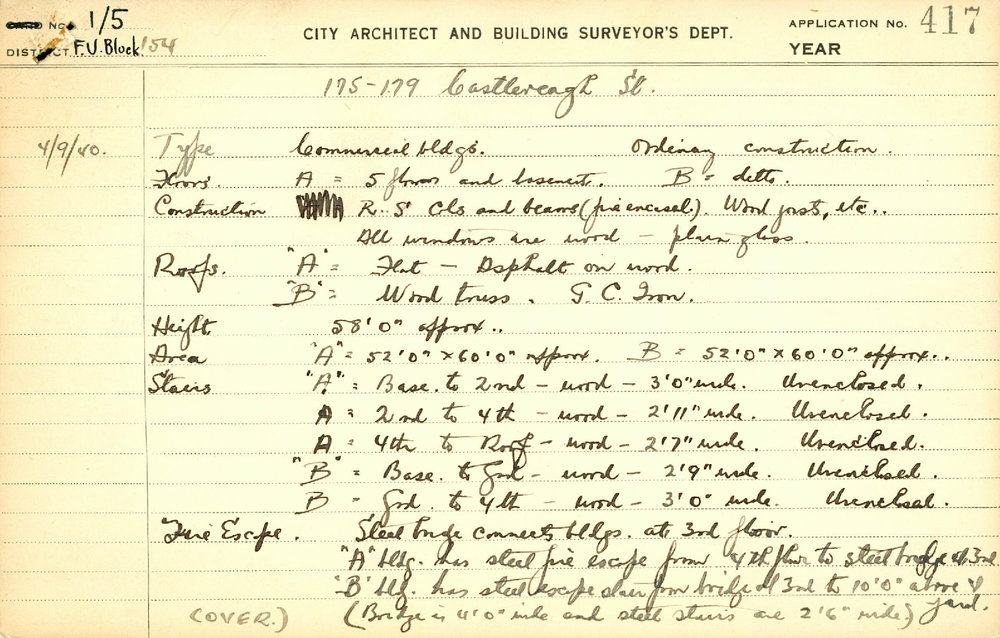 CARD NO. 1/5
CITY ARCHITECT AND BUILDING SURVEYOR'S DEPT.
APPLICATION No. 417
DISTRICT F.U. Block 154
YEAR
175-179 Castlereagh St.
4/9/40. Type Commercial bldgs. Ordinary construction.
Floors. A = 5 floors and basement. B = ditto.
Construction R.S Cols and beams (fire encased). Wood joists, etc..
All windows are wood - plain glass.
Roofs. "A" = Flat - Asphalt on wood.
"B" = Wood truss. G.C. Iron.
Height 58'0" approx..
Area "A" = 52'0" x 60'0" approx. B = 52'0" x 60'0" approx..
Stairs "A" = Base. to 2nd - wood - 3'0" wide. Unenclosed.
A = 2nd to 4th - wood - 2'11" wide. Unenclosed.
A = 4th to Roof - wood - 2'7" wide. Unenclosed.
"B" = Base. to Grd - wood - 2'9" wide. Unenclosed.
B = Grd. to 4th - wood - 3'0" wide. Unenclosed.
Fire Escape. Steel bridge connects bldgs. at 3rd floor.
"A" bldg. has steel fire escape from 4th floor to steel bridge at 3rd
"B" bldg. has steel escape stair from bridge at 3rd to 10'0" above yard.
(OVER.) (Bridge is 4'0" wide and steel stairs are 2'6" wide.)